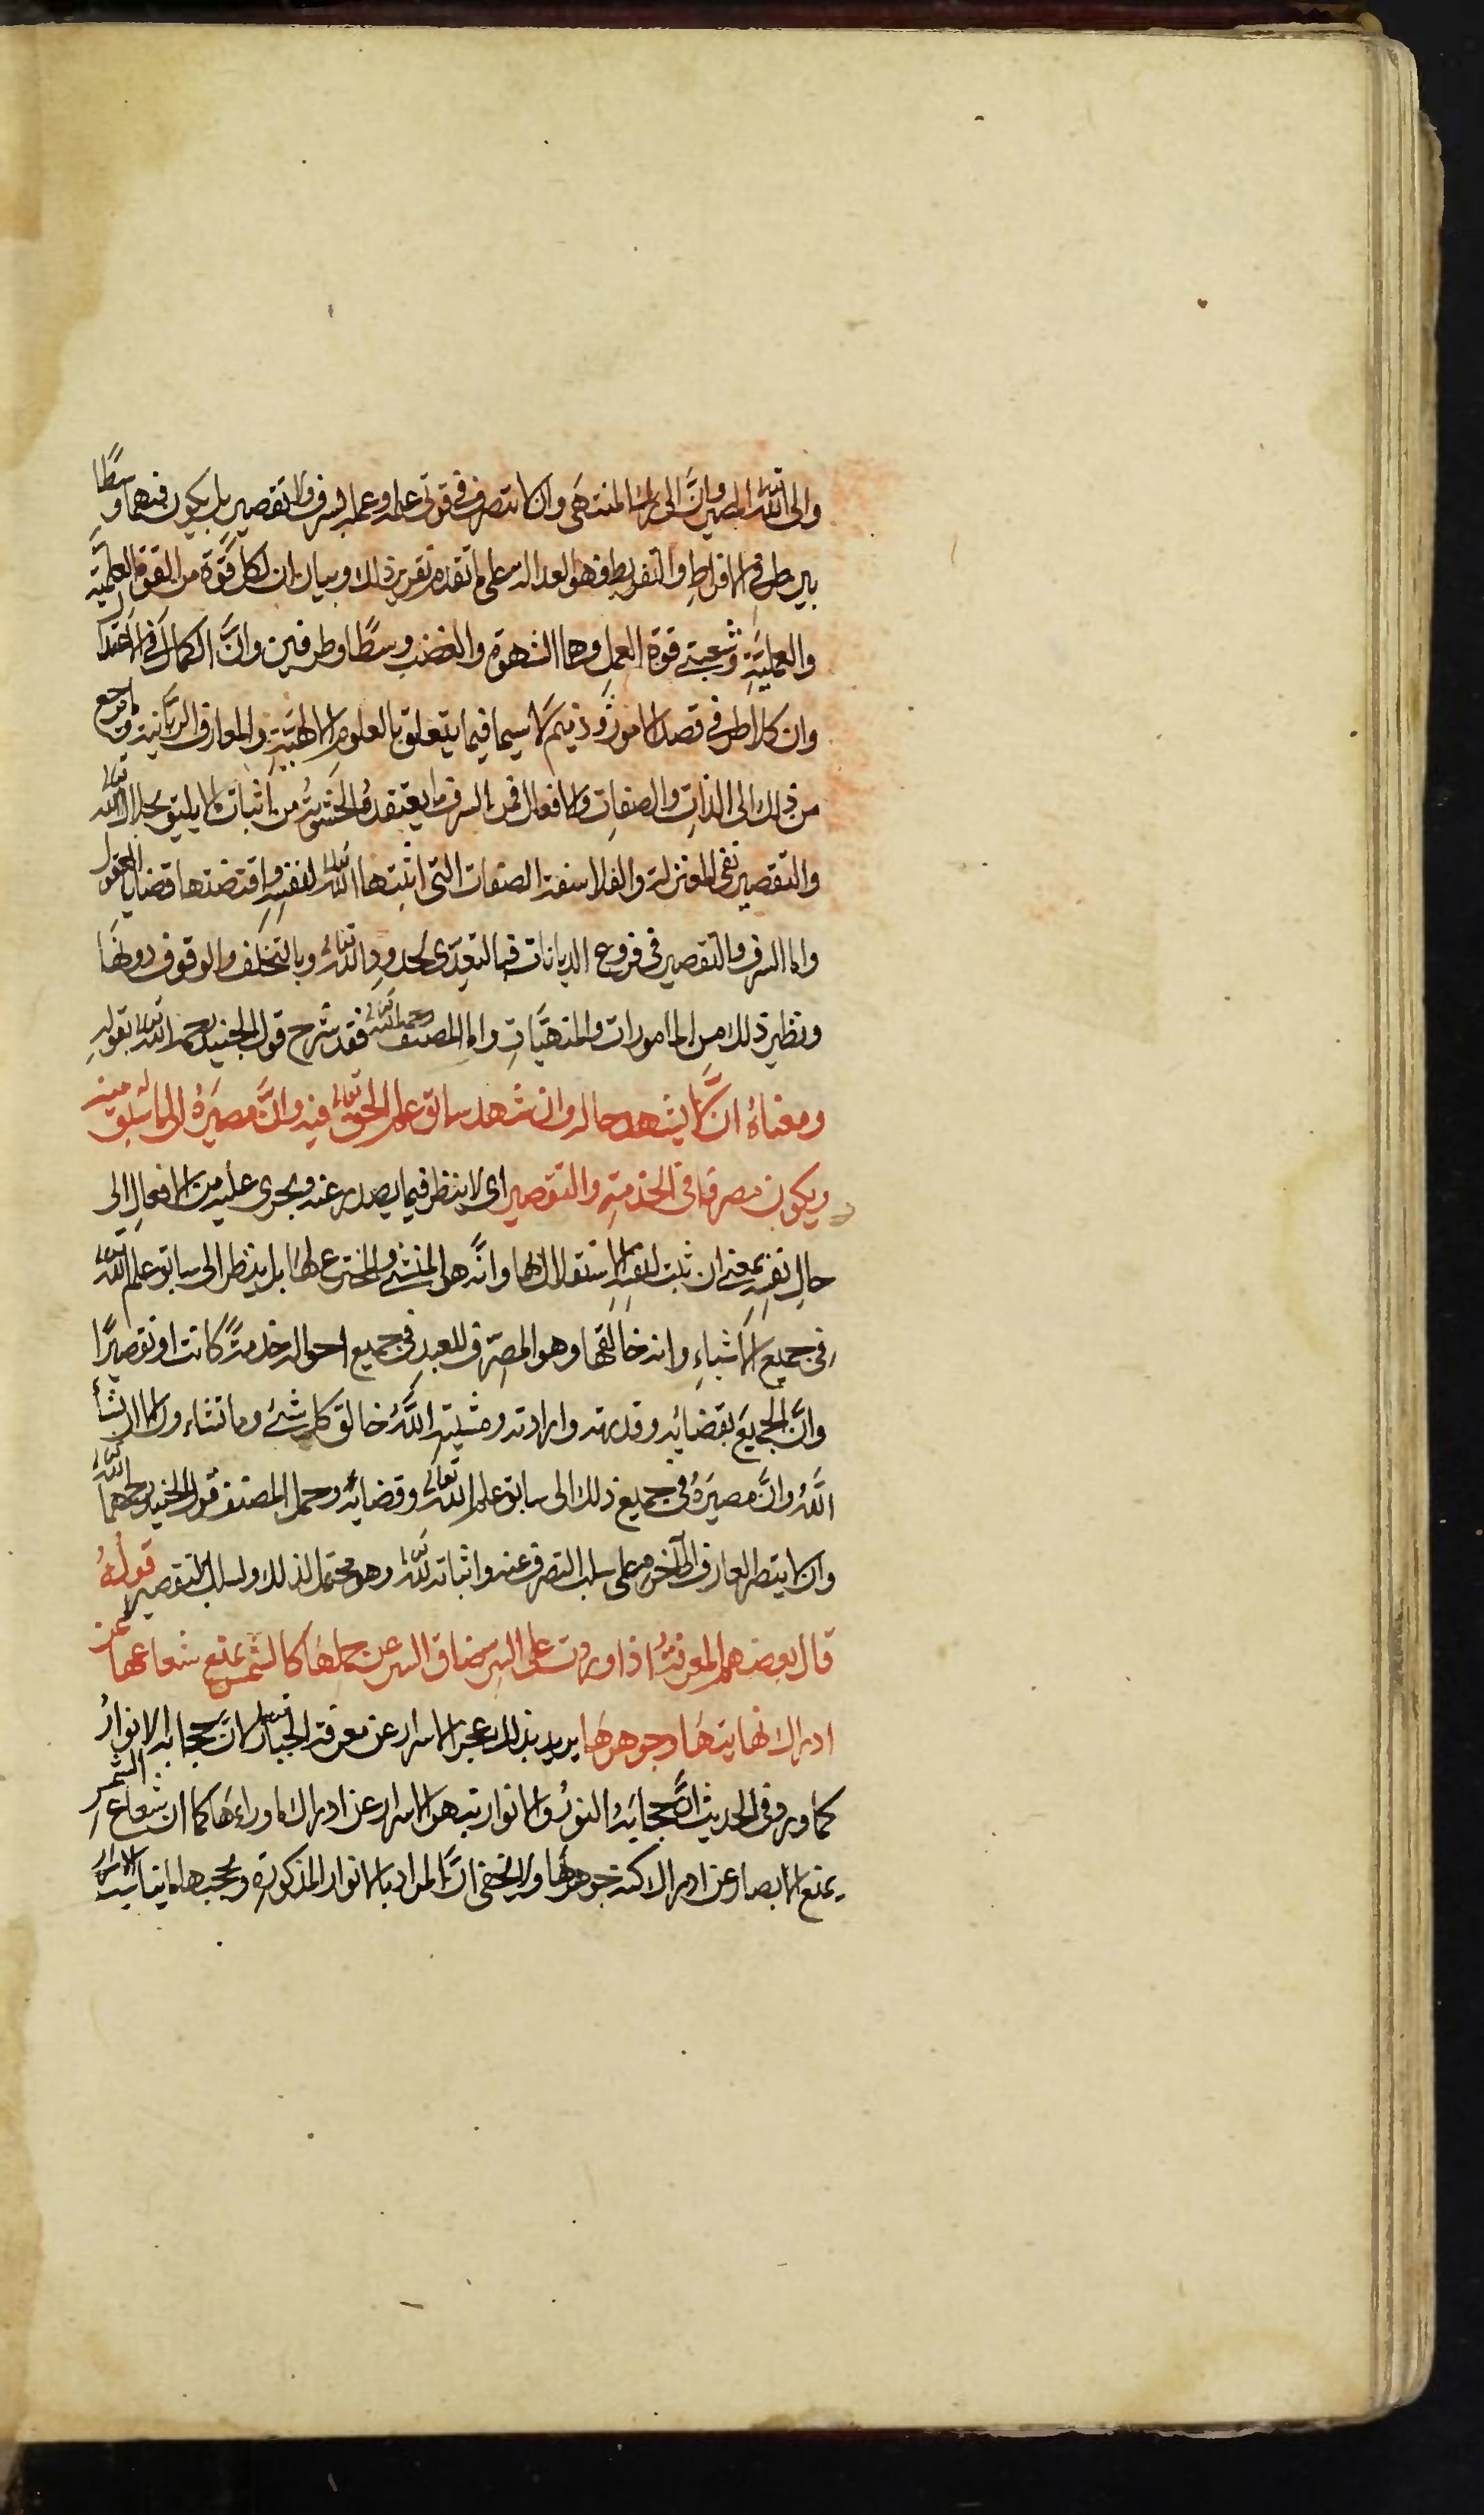 والى الله تعالى المصير وان الى ربك المنتهى وان لا يتصرف في قوتى علمه وعمله بسرف ولا تقصير بل يكون فيهما وسطًا
بين طرفي الافراط والتفريط فهو العدالة على ما تقدم تقرير ذلك وبيان ان لكل قوة من القوة العلمية
والعملية وشعبتي قوة العمل وهما الشهوة والغضب وسطًا وطرفين وانَّ الكمال في الاعتدال
وان كلا طرفي قصد الامور ذميم لا سيما فيما يتعلق بالعلوم الالهية والمعارف الربانية وما يرجع
من ذلك الى الذات والصفات والافعال فمن السرف ما يعتقده الحشوية من اثبات ما لا يليق بجلال الله تعالى
والتقصير نفى المعتزلة والفلاسفة الصفات التى اثبتها الله تعالى لنفسه واقتضتها قضايا العقول
واما السرف والتقصير في فروع الديانات فبالتعدى لحدود الله تعالى وبالتخلف والوقوف دونها
ونظير ذلك من المامورات والمنهيات واما المصنف رحمه الله تعالى فقد شرح قول الجنيد رحمه الله تعالى بقوله
ومعناه ان لا يشهد حاله وان شهد سابق علم الحق تعالى فيه وانَّ مصيره الى ما سبق منه
ويكون مصرفا في الخدمة والتقصير اى لا ينظر فيما يصدر عنه ويجرى عليه من الافعال الى
حال نفسه بمعنى ان يثبت لنفسه الاستقلال بها وانَّه هو المنشئ والمخترع لها بل ينظر الى سابق علم الله تعالى
في جميع الاشياء وانه خالقها وهو المصرف للعبد في جميع احواله خدمةً كانت او تقصيرًا
وانَّ الجميع بقضائه وقدرته وارادته ومشيته اللَّهُ خالق كل شئ وما تشاءون الا ان يشأ
اللَّهُ وانَّ مصيره في جميع ذلك الى سابق علم الله تعالى وقضائه وحمل المصنف قول الجنيد رحمهما الله تعالى
وان لا يتصرف العارف الى آخره على سلب التصرف عنه واثباته لله تعالى وهو محتمل لذلك ولسلب التقصير قوله
قال بعضهم المعرفة اذا وردت على السر ضاق السر عن حملها كالشمس يمنع شعاعها عن
ادراك نهايتها وجوهرها يريد بذلك عجز الاسرار عن معرفة الجبار تعالى لانَّ حجابه الانوار
كما ورد في الحديث انَّ حجابه النور والانوار تبهر الاسرار عن ادراك ما وراءها كما ان شعاع الشمس
يمنع الابصار عن ادراك كنه جوهرها ولا يخفى انَّ المراد بالانوار المذكورة وحجبها ما يناسب الاسرار